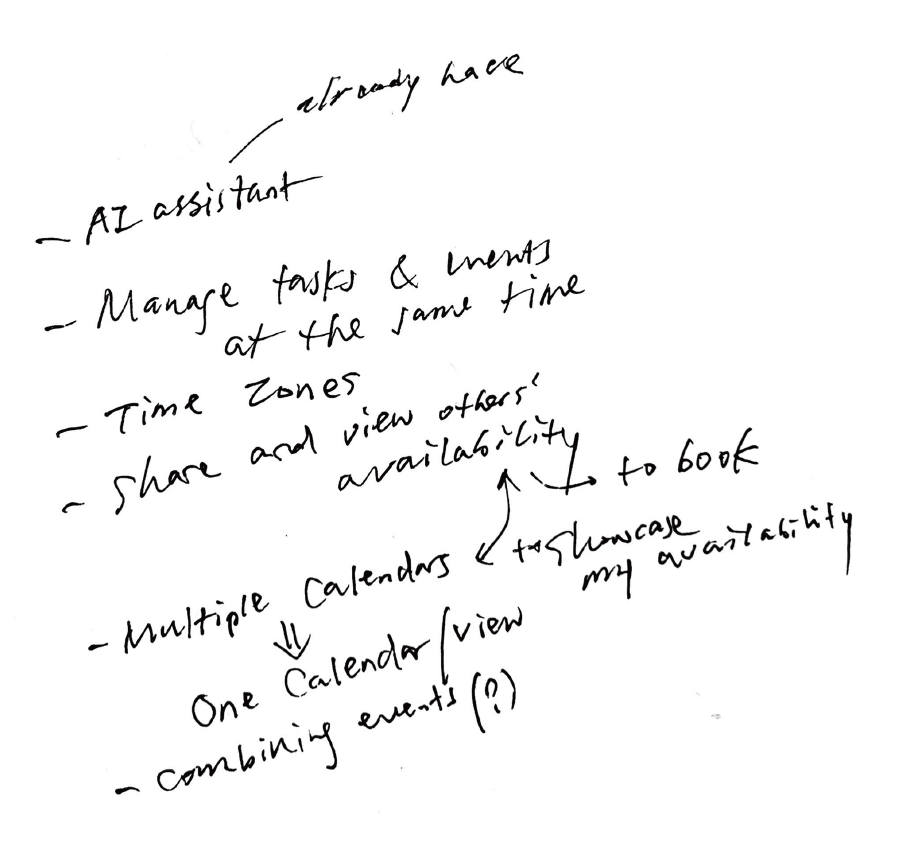 already have
- AI assistant
- Manage tasks & events
at the same time
- Time Zones
- Share and view others'
availability
to book
- Multiple Calendars
to showcase
my availability
One Calendar/view
- combining events (?)